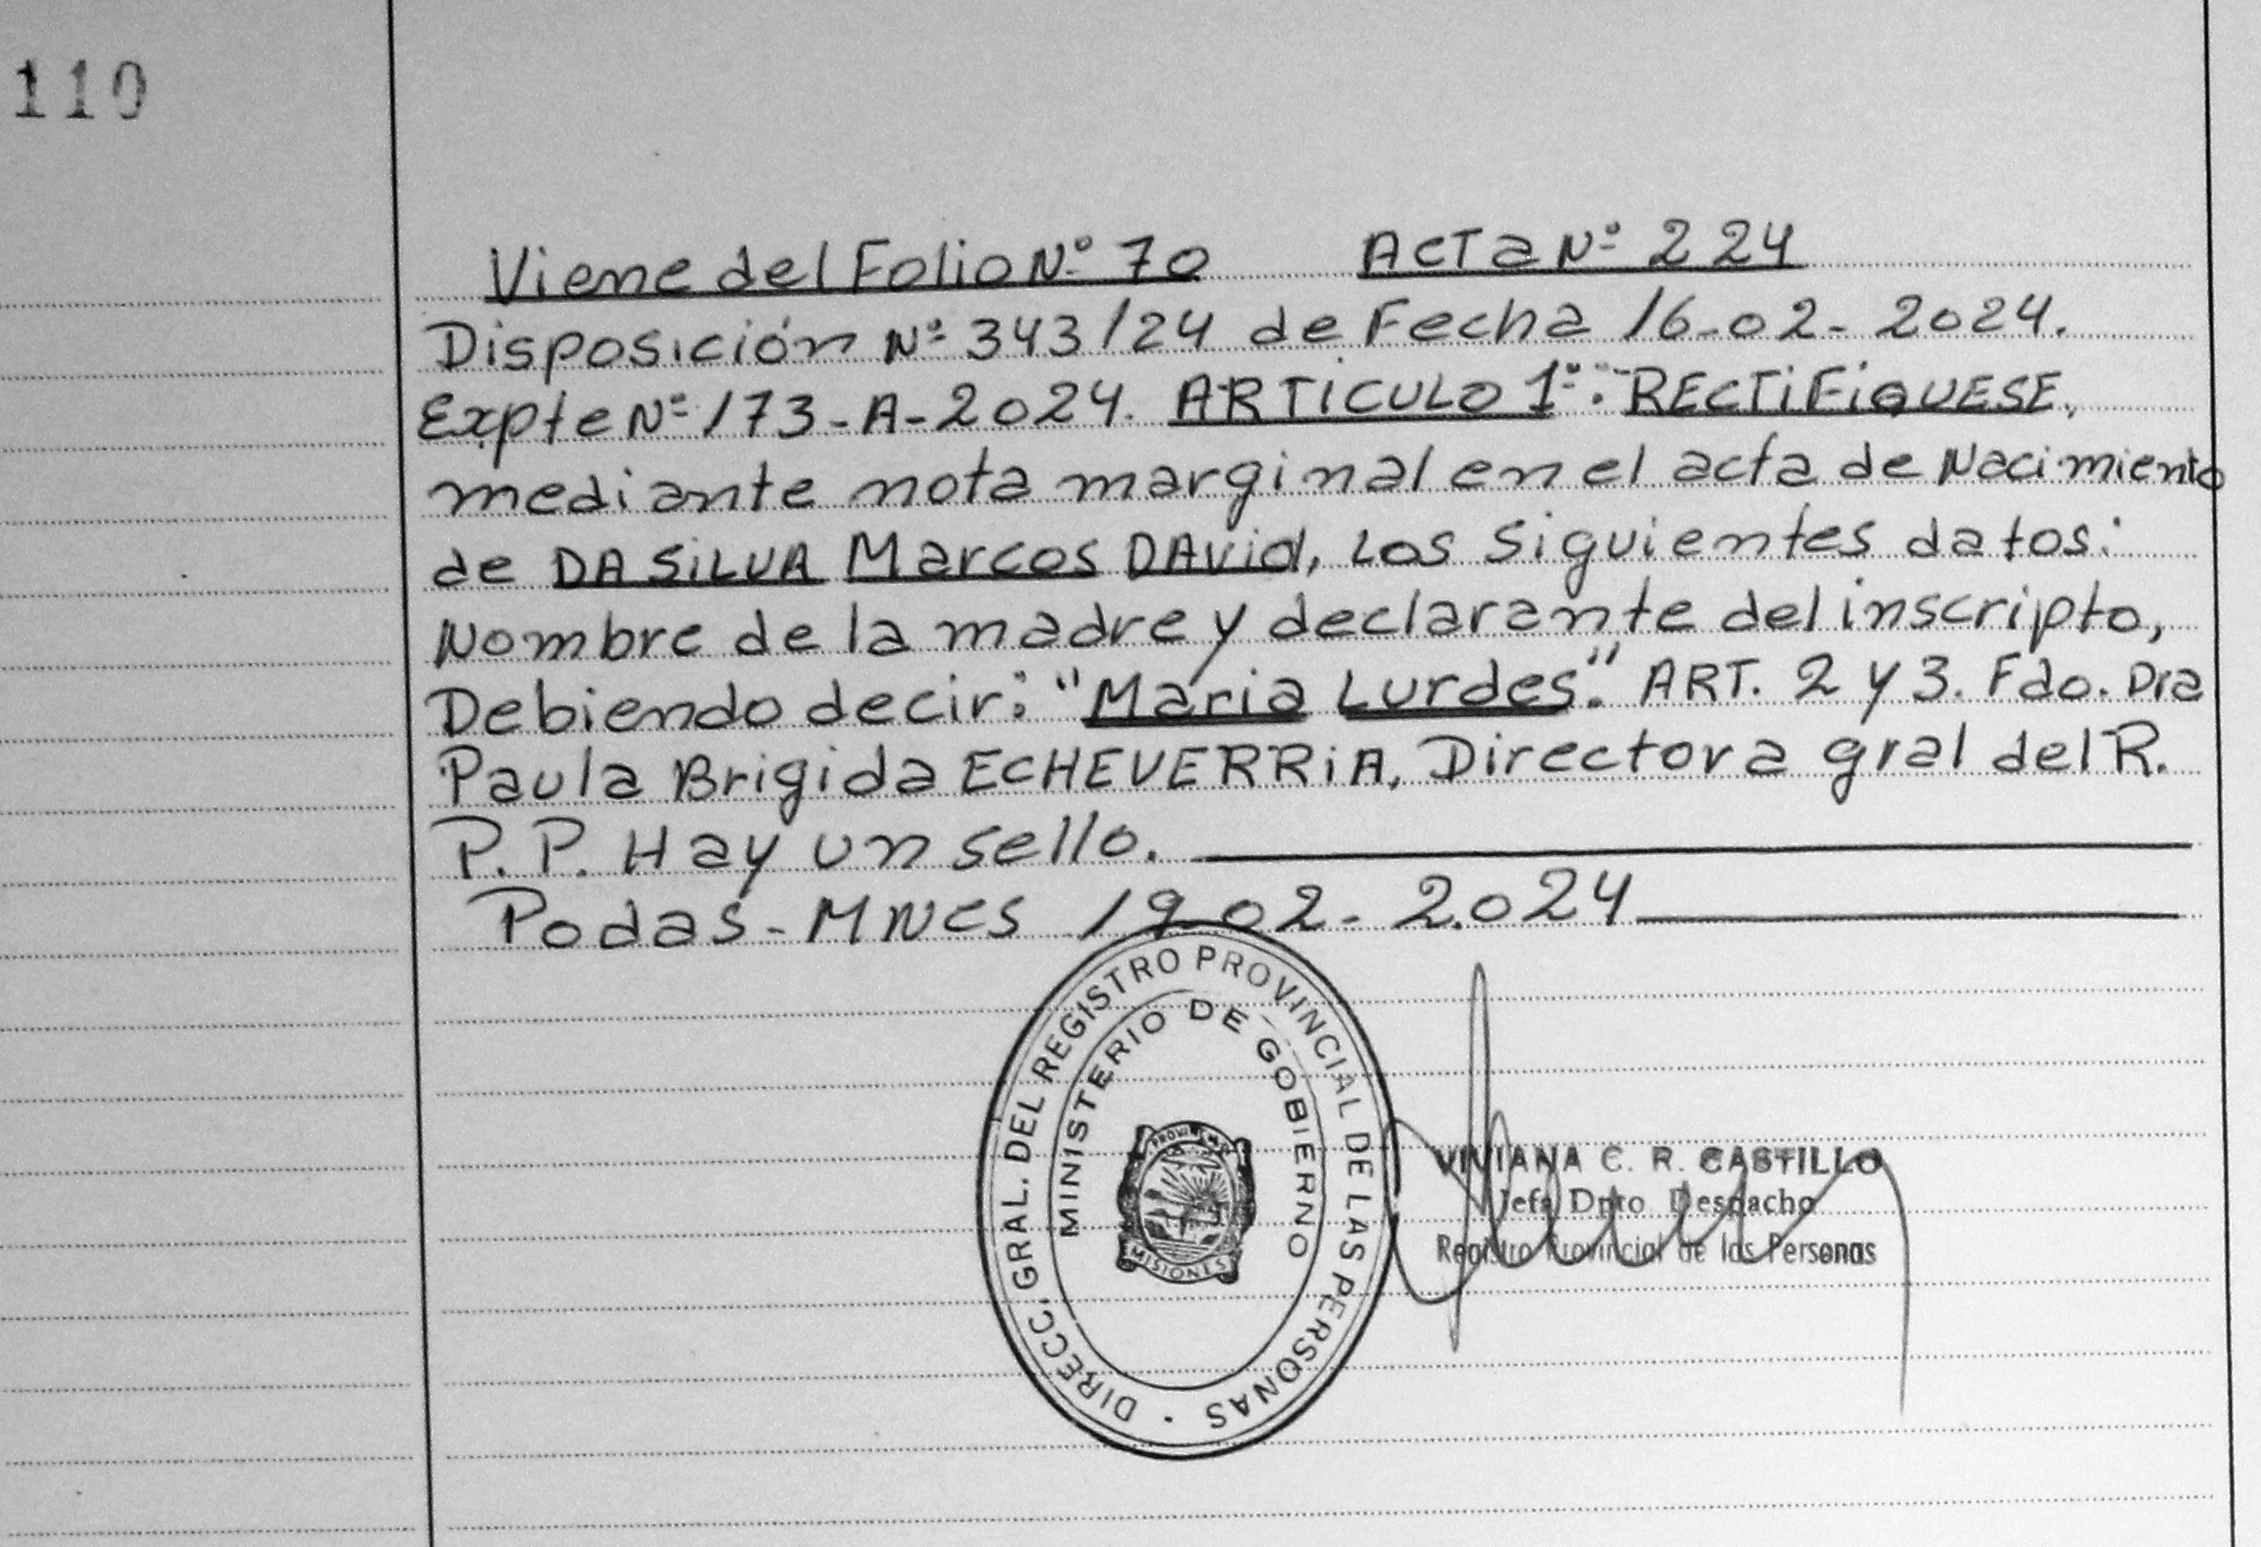 110
Viene del Folio Nº 70 ACTA Nº 224
Disposición Nº 343/24 de Fecha 16-02-2024.
Expte Nº 173-A-2024. ARTICULO 1º: RECTIFIQUESE,
mediante nota marginal en el acta de Nacimiento
de DA SILVA Marcos DAvid, Los siguientes datos:
Nombre de la madre y declarante del inscripto,
Debiendo decir: "Maria Lurdes". ART. 2 y 3. Fdo. Dra
Paula Brigida ECHEVERRiA, Directora gral del R.
P.P. Hay un sello.
Podas-MNES 19-02-2024
DIRECC. GRAL. DEL REGISTRO PROVINCIAL DE LAS PERSONAS
MINISTERIO DE GOBIERNO
MISIONES
VIVIANA C. R. CASTILLO
Jefa Dpto Despacho
Registro Provincial de las Personas